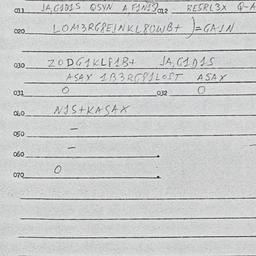 011 JA,G1D1S QSYN A F1N1? 012 RESRL3X Q-A
020 LOM3RGPEJNKL8OWB+ )=GAJN
030 ZODG1KLP1B+ JA,G1D1S
ASAY 1B3RGP1LOST ASAY
031 O 032 O
040 N1S+KASAX
050 –
060 –
070 O